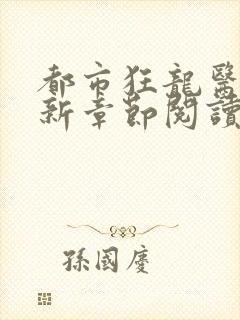 都市狂龍醫
新章節閱讀
孫國慶